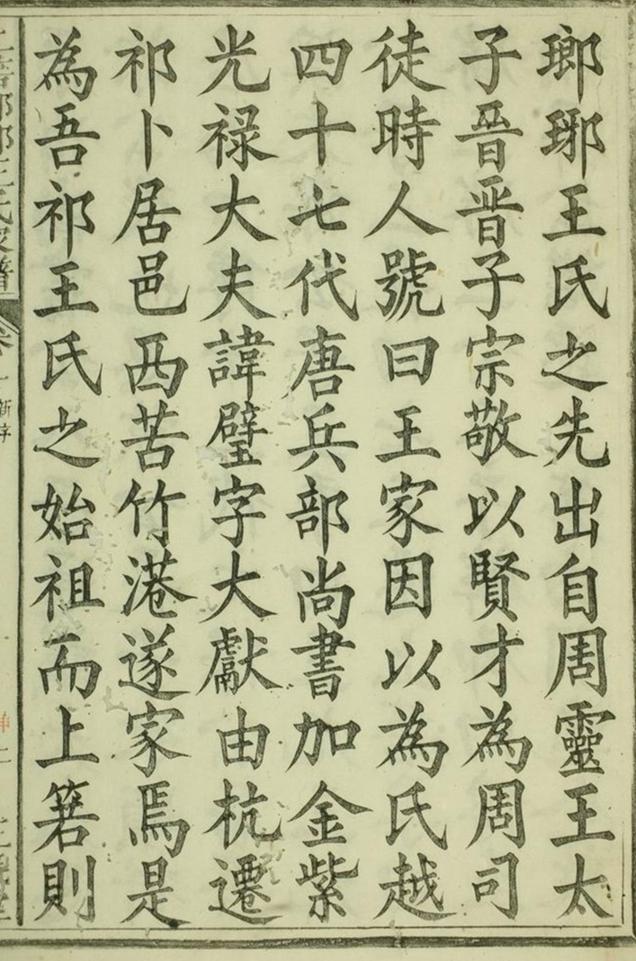 瑯琊王氏之先出自周靈王太
子晉晋子宗敬以賢才為周司
徒時人號曰王家因以為氏越
四十七代唐兵部尚書加金紫
光祿大夫諱璧字大獻由杭遷
祁卜居邑西苦竹港遂家焉是
為吾祁王氏之始祖而上箬則